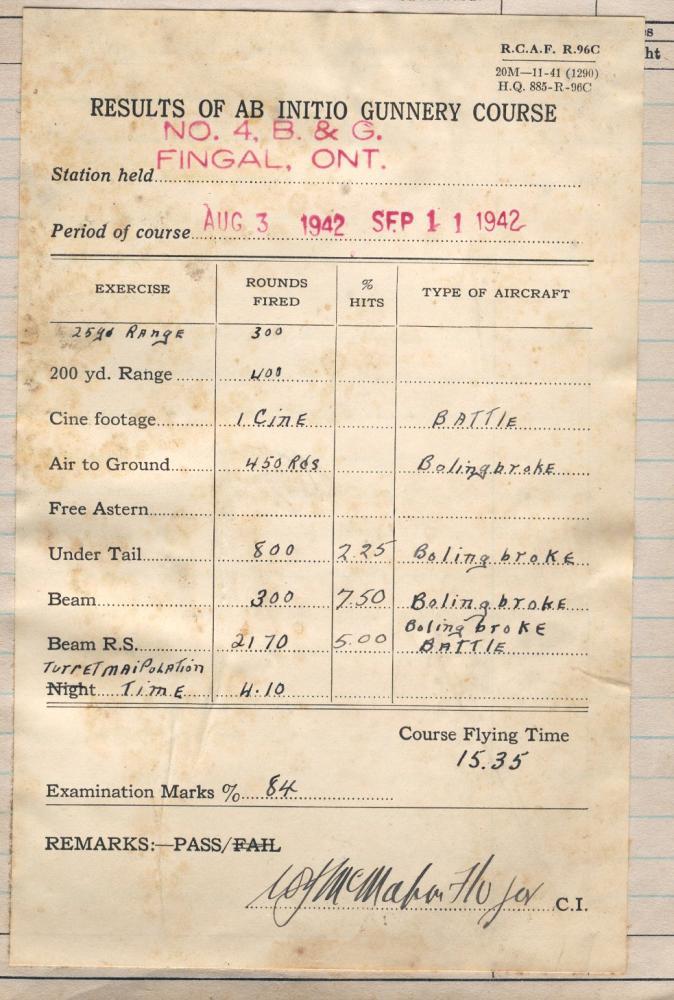 s
ht
R.C.A.F. R.96C
20M—11-41 (1290)
H.Q. 885-R-96C
RESULTS OF AB INITIO GUNNERY COURSE
NO. 4, B. & G.
FINGAL, ONT.
Station held
Period of course AUG 3 1942 SEP 1 1 1942
EXERCISE ROUNDS FIRED % HITS TYPE OF AIRCRAFT
25yd RAngE 300
200 yd. Range 400
Cine footage 1 CinE BATTlE
Air to Ground 450 Rds Bolingbroke
Free Astern
Under Tail 800 2.25 BolingbroKE
Beam 300 7.50 Bolingbroke
BolingbroKE
Beam R.S. 2170 5.00 BATTlE
TurrET mAiPolATion
Night TimE 4.10
Course Flying Time
15.35
Examination Marks % 84
REMARKS:—PASS/FAIL
McMahon for C.I.